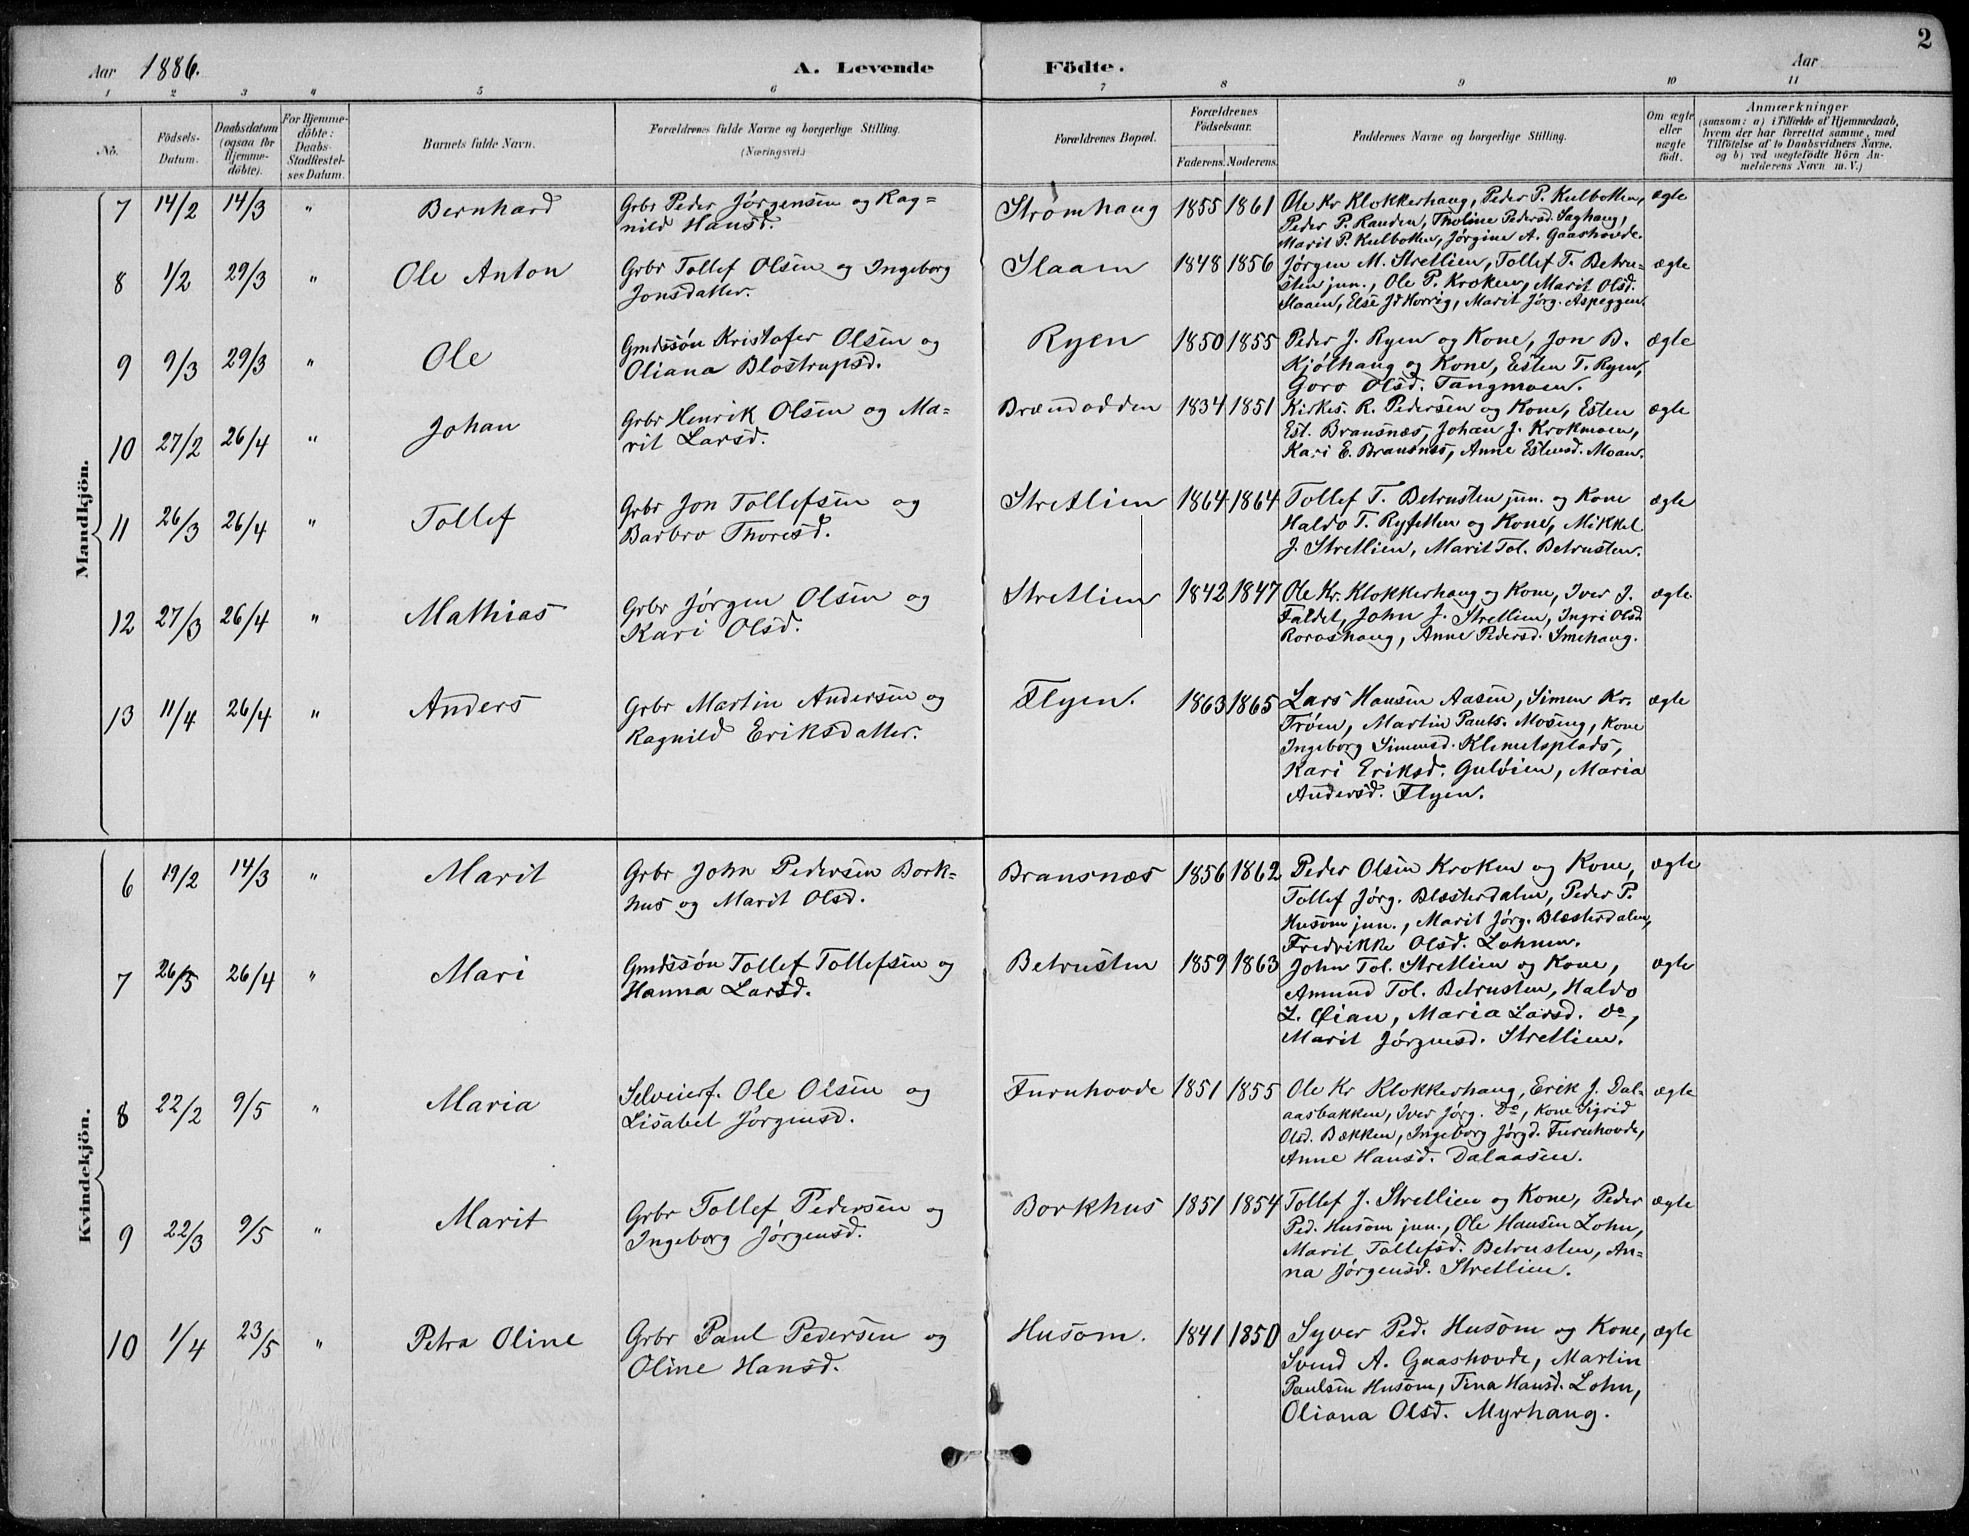 2
Aar 1886. A. Levende Födte. Aar
1 2 3 4 5 6 7 8 9 10 11
No.
Födsels-
Datum.
Daabsdatum
(ogsaa for
Hjemme-
döbte).
For Hjemme-
döbte:
Daabs-
Stadfæstel-
ses Datum.
Barnets fulde Navn.
Forældrenes fulde Navne og borgerlige Stilling.
(Næringsvei.)
Forældrenes Bopæl.
Forældrenes
Födselsaar.
Faderens. Moderens.
Faddernes Navne og borgerlige Stilling.
Om ægte
eller
uægte
födt.
Anmærkninger
(saasom: a) i Tilfælde af Hjemmedaab,
hvem der har forrettet samme, med
Tilföielse af to Daabsvidners Navne,
og b) ved uægtefödte Börn An-
melderens Navn m. V.)
Mandkjön.
7 14/2 14/3 " Bernhard Grbr Peder Jørgensen og Rag= Strømhaug 1855 1861 Ole Kr Klokkerhaug, Peder P. Kulbotten, ægte
nild Hansd. Peder P. Randen, Tholine Pedersd. Saghaug,
Marit P. Kulbotten, Jørgine A. Gaashovde.
8 1/2 29/3 " Ole Anton Grbr Tollef Olsen og Ingeborg Slaaen 1848 1856 Jørgen M. Stretlien, Tollef T. Betru= ægte
Jonsdatter. sten jun., Ole P. Kroken, Marit Olsd.
Slaaen, Else Jd Horrig, Marit Jörg. Aspeggen.
9 9/3 29/3 " Ole Gmdssøn Kristofer Olsen og Ryen 1850 1855 Peder J. Ryen og Kone, Jon B. ægte
Oliana Blostrupsd. Kjølhaug og Kone, Esten T. Ryen,
Goro Olsd. Tangmoen.
10 27/2 26/4 " Johan Grbr Henrik Olsen og Ma= Brændodden 1834 1851 Kirkes. R. Pedersen og Kone, Esten ægte
rit Larsd. Est. Bransnæs, Johan J. Krokmoen,
Kari E. Bransnes, Anne Estensd. Moan.
11 26/3 26/4 " Tollef Grbr Jon Tollefsen og Stretlien 1864 1864 Tollef T. Betrusten jun. og Kone ægte
Barbro Thoresd. Haldo T. Ryfetten og Kone, Mikkel
J. Stretlien, Marit Tol. Betrusten.
12 27/3 26/4 " Mathias Grbr Jørgen Olsen og Stretlien 1842 1847 Ole Kr. Klokkerhaug og Kone, Iver J. ægte
Kari Olsd. Faldet, John J. Stretlien, Ingri Olsd
Roroshaug, Anne Pedersd. Smehaug.
13 11/4 26/4 " Anders Grbr Martin Andersen og Flyen. 1863 1865 Lars Hansen Aasen, Simen Kr. ægte
Ragnild Eriksdatter. Trøen, Martin Pauls. Moseng, Kone
Ingeborg Simensd. Klemetsplads,
Kari Eriksd. Guløien, Maria
Andersd. Flyen.
Kvindekjön.
6 19/2 14/3 " Marit Grbr John Pedersen Bork= Bransnæs 1856 1862 Peder Olsen Kroken og Kone, ægte
hus og Marit Olsd. Tollef Jørg. Blæsterdalen, Peder P.
Husom jun., Marit Jørg. Blæsterdalen,
Fredrikke Olsd. Lohnen.
7 26/3 26/4 " Mari Gmdssøn Tollef Tollefsen og Betrusten 1859 1863 John Tol. Stretlien og Kone, ægte
Hanna Larsd. Amund Tol. Betrusten, Haldo
L. Øian, Maria Larsd. do,
Marit Jørgensd. Stretlien.
8 22/2 9/5 " Maria Selveierf. Ole Olsen og Furuhovde 1851 1855 Ole Kr Klokkerhaug, Erik J. Dal= ægte
Lisabet Jørgensd. aasbakken, Iver Jørg. Do, Kone Sigrid
Olsd. Bækken, Ingeborg Jørgd. Furuhovde,
Anne Hansd. Dalaasen.
9 22/3 9/5 " Marit Grbr Tollef Pedersen og Borkhus 1851 1854 Tollef J. Stretlien og Kone, Peder ægte
Ingeborg Jørgensd. Ped. Husom jun., Ole Hansen Lohn,
Marit Tollefsd. Betrusten, An=
na Jørgensd. Stretlien.
10 1/4 23/5 " Petra Oline Grbr Paul Pedersen og Husom. 1841 1850 Syver Ped. Husom og Kone, ægte
Oline Hansd. Svend A. Gaashovde, Martin
Paulsen Husom, Tina Hansd. Lohn,
Oliana Olsd. Myrhaug.